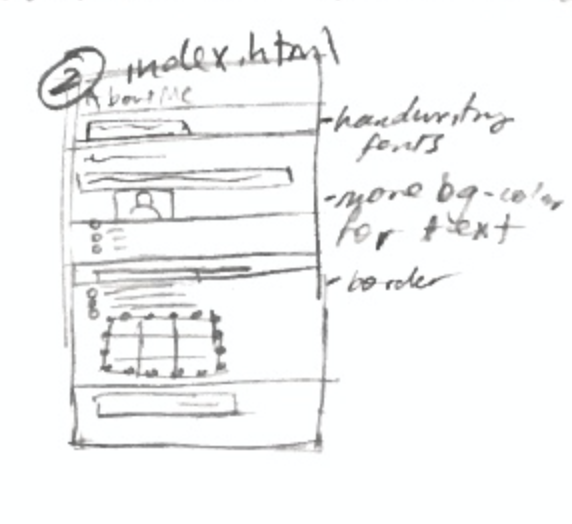 2 index.html
About Me
-handwriting
fonts
-more bg-color
for text
-border